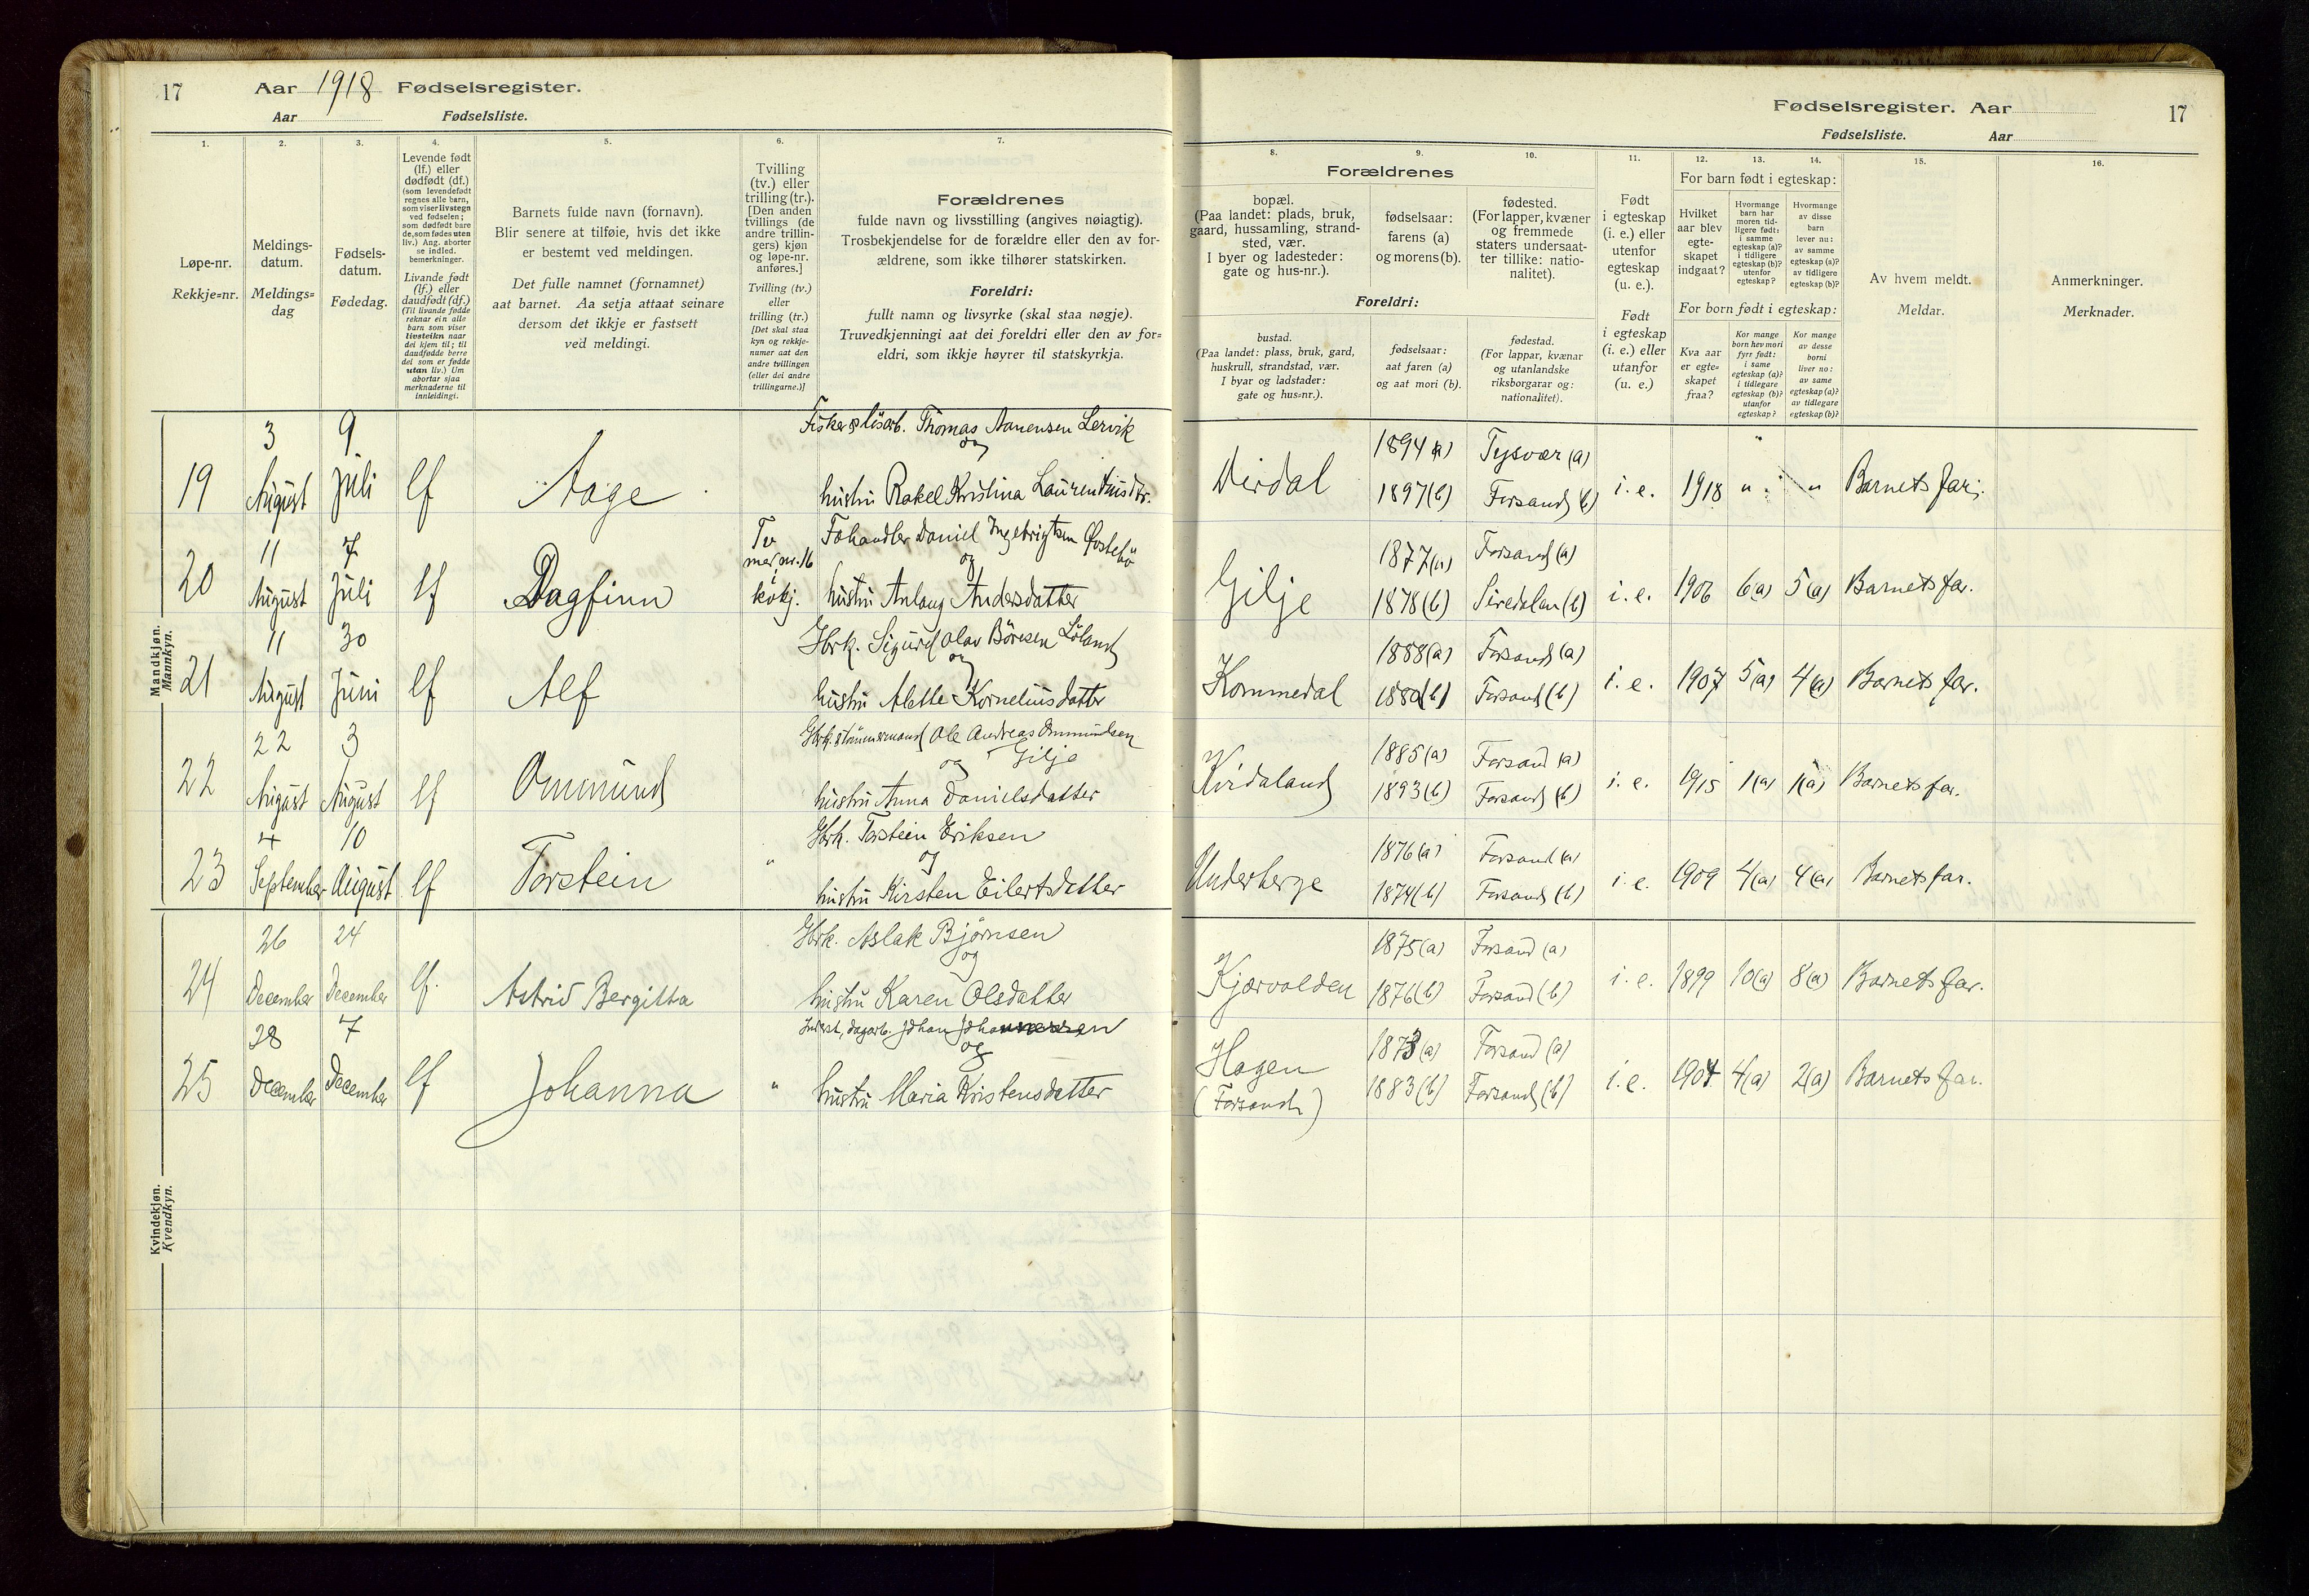 17 Aar 1918 Fødselsregister.
Aar Fødselsliste.
1. 2. 3. 4. 5. 6. 7.
Løpe-nr.
Rekkje=nr.
Meldings-
datum.
Meldings=
dag
Fødsels-
datum.
Fødedag.
Levende født
(lf.) eller
dødfødt (df.)
(som levendefødt
regnes alle barn,
som viser livstegn
ved fødselen;
som dødfødt bare
de, som fødes uten
liv.) Ang. aborter
se indled.
bemerkninger.
Livande født
(lf.) eller
daudfødt (df.)
(Til livande fødde
reknar ein alle
barn som viser
livsteikn naar
dei kjem til; til
daudfødde berre
dei som er fødde
utan liv.) Um
abortar sjaa
merknaderne til
innleidingi.
Barnets fulde navn (fornavn).
Blir senere at tilføie, hvis det ikke
er bestemt ved meldingen.
Det fulle namnet (fornamnet)
aat barnet. Aa setja attaat seinare
dersom det ikkje er fastsett
ved meldingi.
Tvilling
(tv.) eller
trilling (tr.).
[Den anden
tvillings (de
andre trillin-
gers) kjøn
og løpe-nr.
anføres.]
Tvilling (tv.)
eller
trilling (tr.)
[Det skal staa
kyn og rekkje-
numer aat den
andre tvillingen
(eller dei andre
trillingarne.)]
Forældrenes
fulde navn og livsstilling (angives nøiagtig).
Trosbekjendelse for de forældre eller den av for-
ældrene, som ikke tilhører statskirken.
Foreldri:
fullt namn og livsyrke (skal staa nøgje).
Truvedkjenningi aat dei foreldri eller den av for=
eldri, som ikkje høyrer til statskyrkja.
Mandkjøn.
Mannkyn.
3 9 Fisker & løsarb. Thomas Aanensen Lervik
og
19 August Juli lf Aage hustru Rakel Kristina Laurentiusdtr.
11 7 Tv Fehandler Daniel Ingebrigtsen Østebø
med nr. 16 og
20 August Juli lf Dagfinn kvkj. hustru Anlaug Andersdatter
11 30 Gbrk. Sigurd Olav Børesen Løland
og
21 August Juni lf Alf hustru Alette Korneliusdatter
22 3 Gbrk. & tømmermand Ole Andreas Ommundsen
og Gilje
22 August August lf Ommund hustru Anna Danielsdatter
4 10 Gbrk. Torstein Eriksen
" og
23 September August lf Torstein hustru Kirsten Eilertsdatter
Kvindekjøn.
Kvendkyn.
26 24 Gbrk. Aslak Bjørnsen
og
24 December December lf. Astrid Bergitta hustru Karen Olsdatter
28 7 Inderst, dagarb. Johan Johannessen
og
25 December December lf Johanna " hustru Maria Kristensdatter
Fødselsregister. Aar 17
Fødselsliste. Aar
8. 9. 10. 11. 12. 13. 14. 15. 16.
Forældrenes
bopæl.
(Paa landet: plads, bruk,
gaard, hussamling, strand-
sted, vær.
I byer og ladesteder:
gate og hus-nr.).
fødselsaar:
farens (a)
og morens (b).
fødested.
(For lapper, kvæner
og fremmede
staters undersaat-
ter tillike: natio-
nalitet).
Foreldri:
bustad.
(Paa landet: plass, bruk, gard,
huskrull, strandstad, vær.
I byar og ladstader:
gate og hus=nr.).
fødselsaar:
aat faren (a)
og aat mori (b).
fødestad.
(For lappar, kvænar
og utanlandske
riksborgarar og:
nationalitet).
Født
i egteskap
(i. e.) eller
utenfor
egteskap
(u. e.).
Født
i egteskap
(i. e.) eller
utanfor
(u. e.)
For barn født i egteskap:
Hvilket
aar blev
egte-
skapet
indgaat?
Hvormange
barn har
moren tid-
ligere født:
i samme
egteskap (a)?
i tidligere
egteskap (b)?
utenfor
egteskap?
Hvormange
av disse
barn
lever nu:
av samme
egteskap (a)?
av tidligere
egteskap (b)?
For born født i egteskap:
Kva aar
er egte=
skapet
fraa?
Kor mange
born hev mori
fyrr født:
i same
egteskap (a)?
i tidlegare
egteskap (b)?
utanfor
egteskap?
Kor mange
av desse
borni
liver no:
av same
egteskap (a)?
av tidlegare
egteskap (b)?
Av hvem meldt.
Meldar.
Anmerkninger.
Merknader.
1894 (a) Tysvær (a)
Dirdal 1897 (b) Forsand (b) i. e. 1918 " " Barnets far.
1877 (a) Forsand (a)
Gilje 1878 (b) Siredalen (b) i. e. 1906 6(a) 5(a) Barnets far.
1888 (a) Forsand (a)
Kommedal 1880 (b) Forsand (b) i. e. 1907 5(a) 4(a) Barnets far.
1885 (a) Forsand (a)
Kvidaland 1893 (b) Forsand (b) i. e. 1915 1(a) 1(a) Barnets far.
1876 (a) Forsand (a)
Underberge 1874 (b) Forsand (b) i. e. 1909 4(a) 4(a) Barnets far.
1875 (a) Forsand (a)
Kjærvolden 1876 (b) Forsand (b) i. e. 1899 10(a) 8(a) Barnets far.
1873 (a) Forsand (a)
Hagen 1883 (b) Forsand (b) i. e. 1904 4(a) 2(a) Barnets far.
(Forsand)